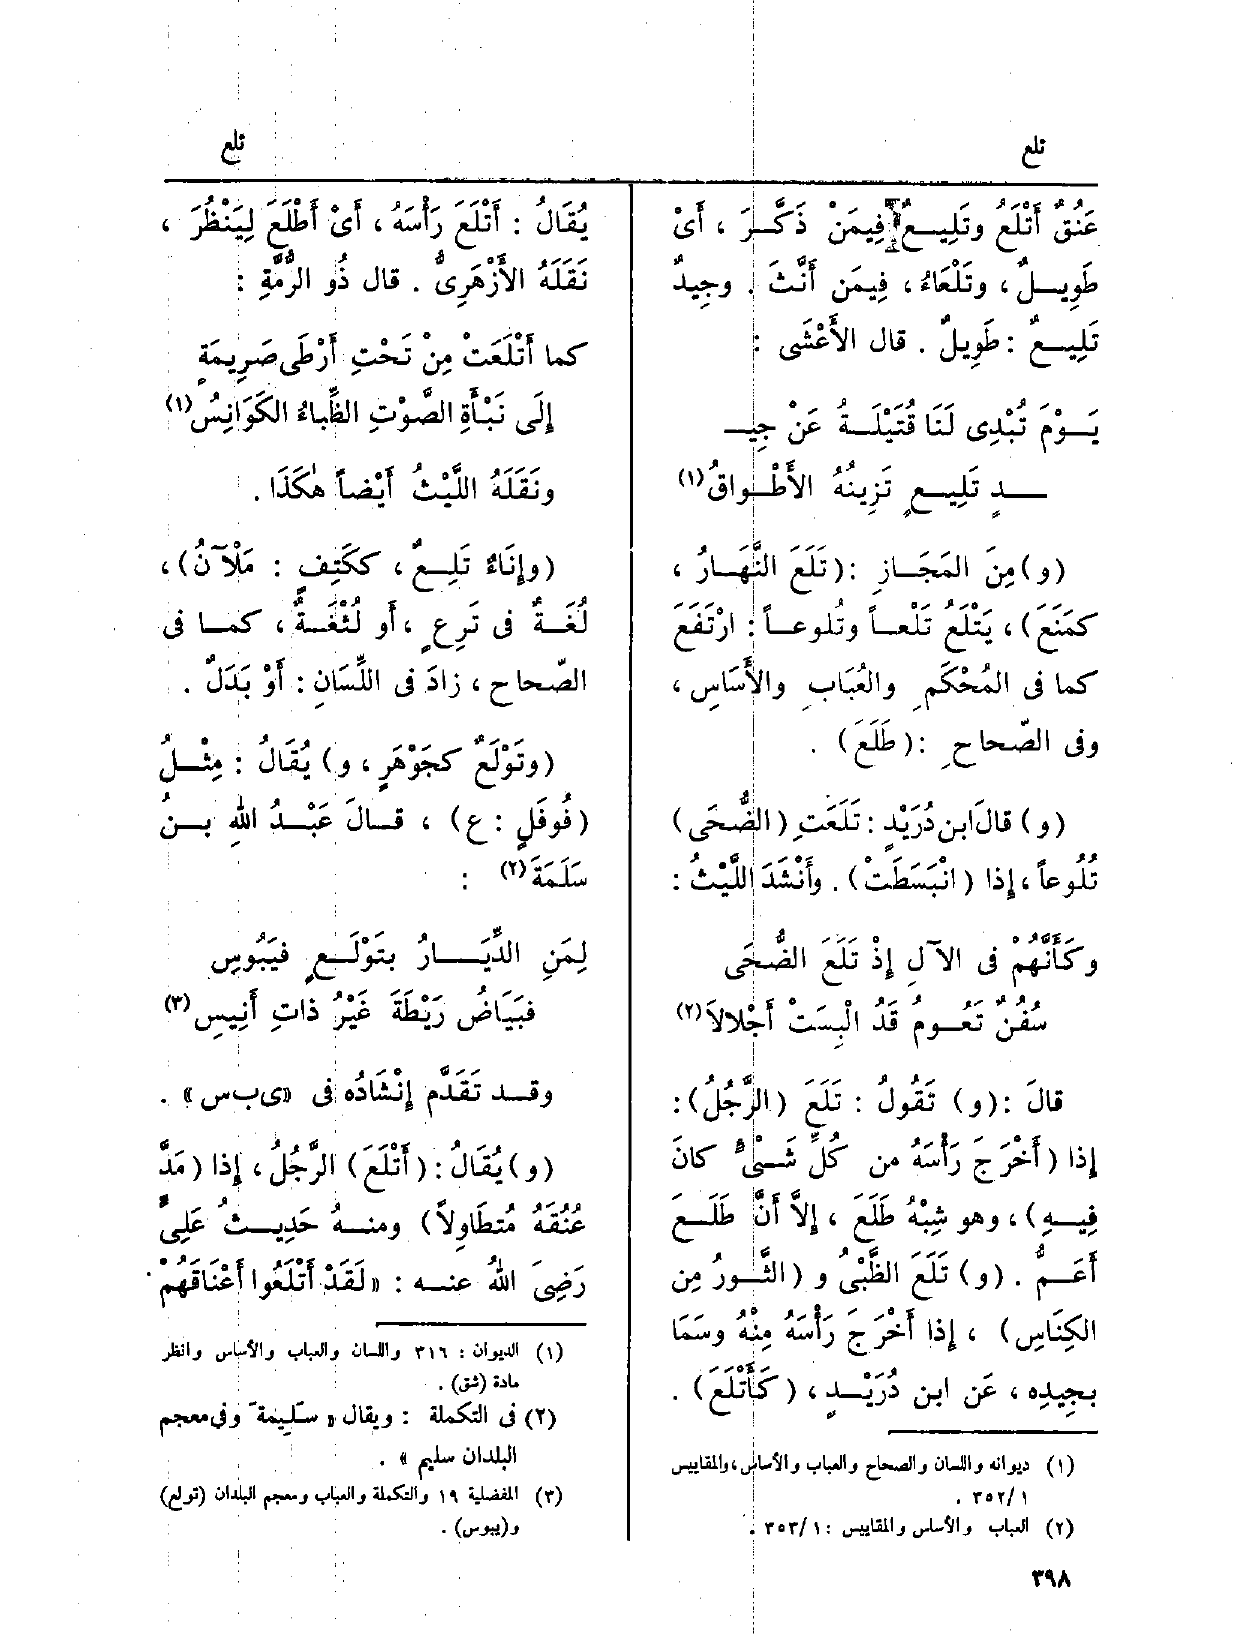 تلع
تلع
عُنُقٌ أَتْلَعُ وتَلِيــعٌ فِيمَنْ ذَكَّــرَ ، أَىْ
طَوِيــلٌ ، وتَلْعَاءُ ، فِيمَن أَنَّثَ . وجِيدٌ
تَلِيــعٌ : طَوِيلٌ . قال الأَعْشَى :
يَــوْمَ تُبْدِى لَنَا قُتَيْلَــةُ عَنْ جِيــ
ــــدٍ تَلِيــعٍ تَزِينُهُ الأَطْــواقُ (١)
(و) مِنَ المَجَــازِ : (تَلَعَ النَّهَــارُ ،
كمَنَعَ) ، يَتْلَعُ تَلْعــاً وتُلوعــاً : ارْتَفَعَ
كما فى المُحْكَمِ والعُبَابِ والأَسَاسِ ،
وفى الصّحاحِ : (طَلَعَ) .
(و) قالَ ابن دُرَيْدٍ : تَلَعَتِ (الضُّحَى)
تُلُوعاً ، إذا (انْبَسَطَتْ) . وأَنْشَدَ اللَّيْثُ :
وكَأَنَّهُمْ فى الآلِ إِذْ تَلَعَ الضُّحَى
سُفُنٌ تَعُــومُ قَدُ الْبِسَتْ أَجْلالاَ (٢)
قالَ : (و) تَقُولُ : تَلَعَ (الرَّجُلُ) :
إذا (أَخْرَجَ رَأْسَهُ من كُلِّ شَــىْءٍ كانَ
فِيــهِ) ، وهو شِبْهُ طَلَعَ ، إِلاَّ أَنَّ طَلَــعَ
أَعَــمُّ . (و) تَلَعَ الظَّبْىُ و (الثَّــورُ مِن
الكِنَاسِ) ، إذا أَخْرَجَ رَأْسَهُ مِنْهُ وسَمَا
بجِيدِه ، عَن ابن دُرَيْــدٍ ، (كَأَتْلَعَ) .
(١) ديوانه واللسان والصحاح والعباب والأساس، والمقاييس
١/٣٥٢ .
(٢) العباب والأساس والمقاييس : ١/٣٥٣ .
٣٩٨
يُقَالُ : أَتْلَعَ رَأْسَهُ ، أَىْ أَطْلَعَ لِيَنْظُرَ ،
نَقَلَهُ الأَزْهَرِىُّ . قال ذُو الرُّمَّةِ :
كما أَتْلَعَتْ مِنْ تَحْتِ أَرْطَى صَرِيمَةٍ
إِلَى نَبْأَةِ الصَّوْتِ الظِّباءُ الكَوَانِسُ (١)
ونَقَلَهُ اللَّيْثُ أَيْضاً هٰكَذَا .
(وإِنَاءٌ تَلِــعٌ ، ككَتِفٍ : مَلْآنُ) ،
لُغَــةٌ فى تَرِعٍ ، أَو لُثْغَــةٌ ، كمــا فى
الصّحاح ، زادَ فى اللِّسَانِ : أَوْ بَدَلٌ .
(وتَوْلَعٌ كجَوْهَرٍ ، و) يُقَالُ : مِثْــلُ
(فُوفَلٍ : ع) ، قــالَ عَبْــدُ اللهِ بــنُ
سَلَمَةَ (٢) :
لِمَنِ الدِّيَــارُ بتَوْلَــعٍ فيَبُوسِ
فبَيَاضُ رَيْطَةَ غَيْرُ ذاتِ أَنِيسِ (٣)
وقــد تَقَدَّم إِنْشَادُه فى «ى ب س» .
(و) يُقَالُ : (أَتْلَعَ) الرَّجُلُ ، إذا (مَدَّ
عُنُقَهُ مُتَطَاوِلاً) ومنــهُ حَدِيــثُ عَلِىٍّ
رَضِىَ اللهُ عنــه : «لَقَدْ أَتْلَعُوا أَعْنَاقَهُمْ
(١) الديوان : ٣١٦ واللسان والعباب والأساس وانظر
مادة (شق) .
(٢) فى التكملة : ويقال «سَلِيمة» وفى معجم
البلدان سليم» .
(٣) المفضلية ١٩ والتكملة والعباب ومعجم البلدان (تولع)
و(يبوس) .